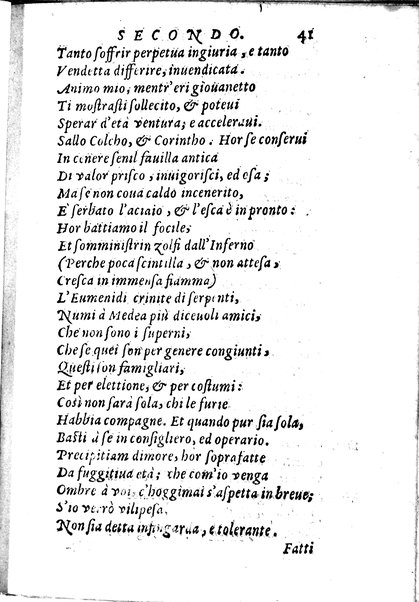 SECONDO. 41
Tanto soffrir perpetua ingiuria, e tanto
Vendetta differire, inuendicata.
Animo mio, mentr'eri giouanetto
Ti mostrasti sollecito, & poteui
Sperar d'età ventura; e acceleraui.
Sallo Colcho, & Corintho. Hor se conserui
In cenere senil fauilla antica
Di valor prisco, inuigorisci, ed esa;
Ma se non coua caldo incenerito,
E serbato l'aciaio, & l'esca è in pronto:
Hor battiamo il focile;
Et somministrin zolfi dall'Inferno
(Perche poca scintilla, & non attesa,
Cresca in immensa fiamma)
L'Eumenidi crinite di serpenti,
Numi à Medea più diceuoli amici,
Che non sono i superni;
Che se quei son per genere congiunti,
Questi son famigliari,
Et per elettione, & per costumi:
Così non farà sola, chi le furie
Habbia compagne. Et quando pur sia sola,
Basti à se in consigliero, ed operario.
Precipitiam dimore, hor soprafatte
Da fuggitiua età; che com'io venga
Ombre à voi, c'hoggimai s'aspetta in breue;
S'io verrò vilipesa.
Non sia detta infingarda, e tolerante.
Fatti